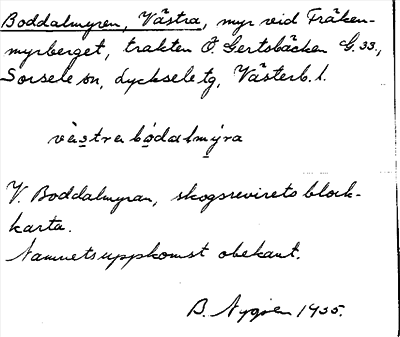 Boddalmyren, Västra, myr vid Fräken-
myrberget, trakten Ö. Gertsbäcken G. 33,
Sorsele sn, Lyckseletg, Västerb. l.
västra bådalmýra
V. Boddalmyran, skogsrevirets block-
karta.
Namnets uppkomst obekant.
B. Nygren 1935.